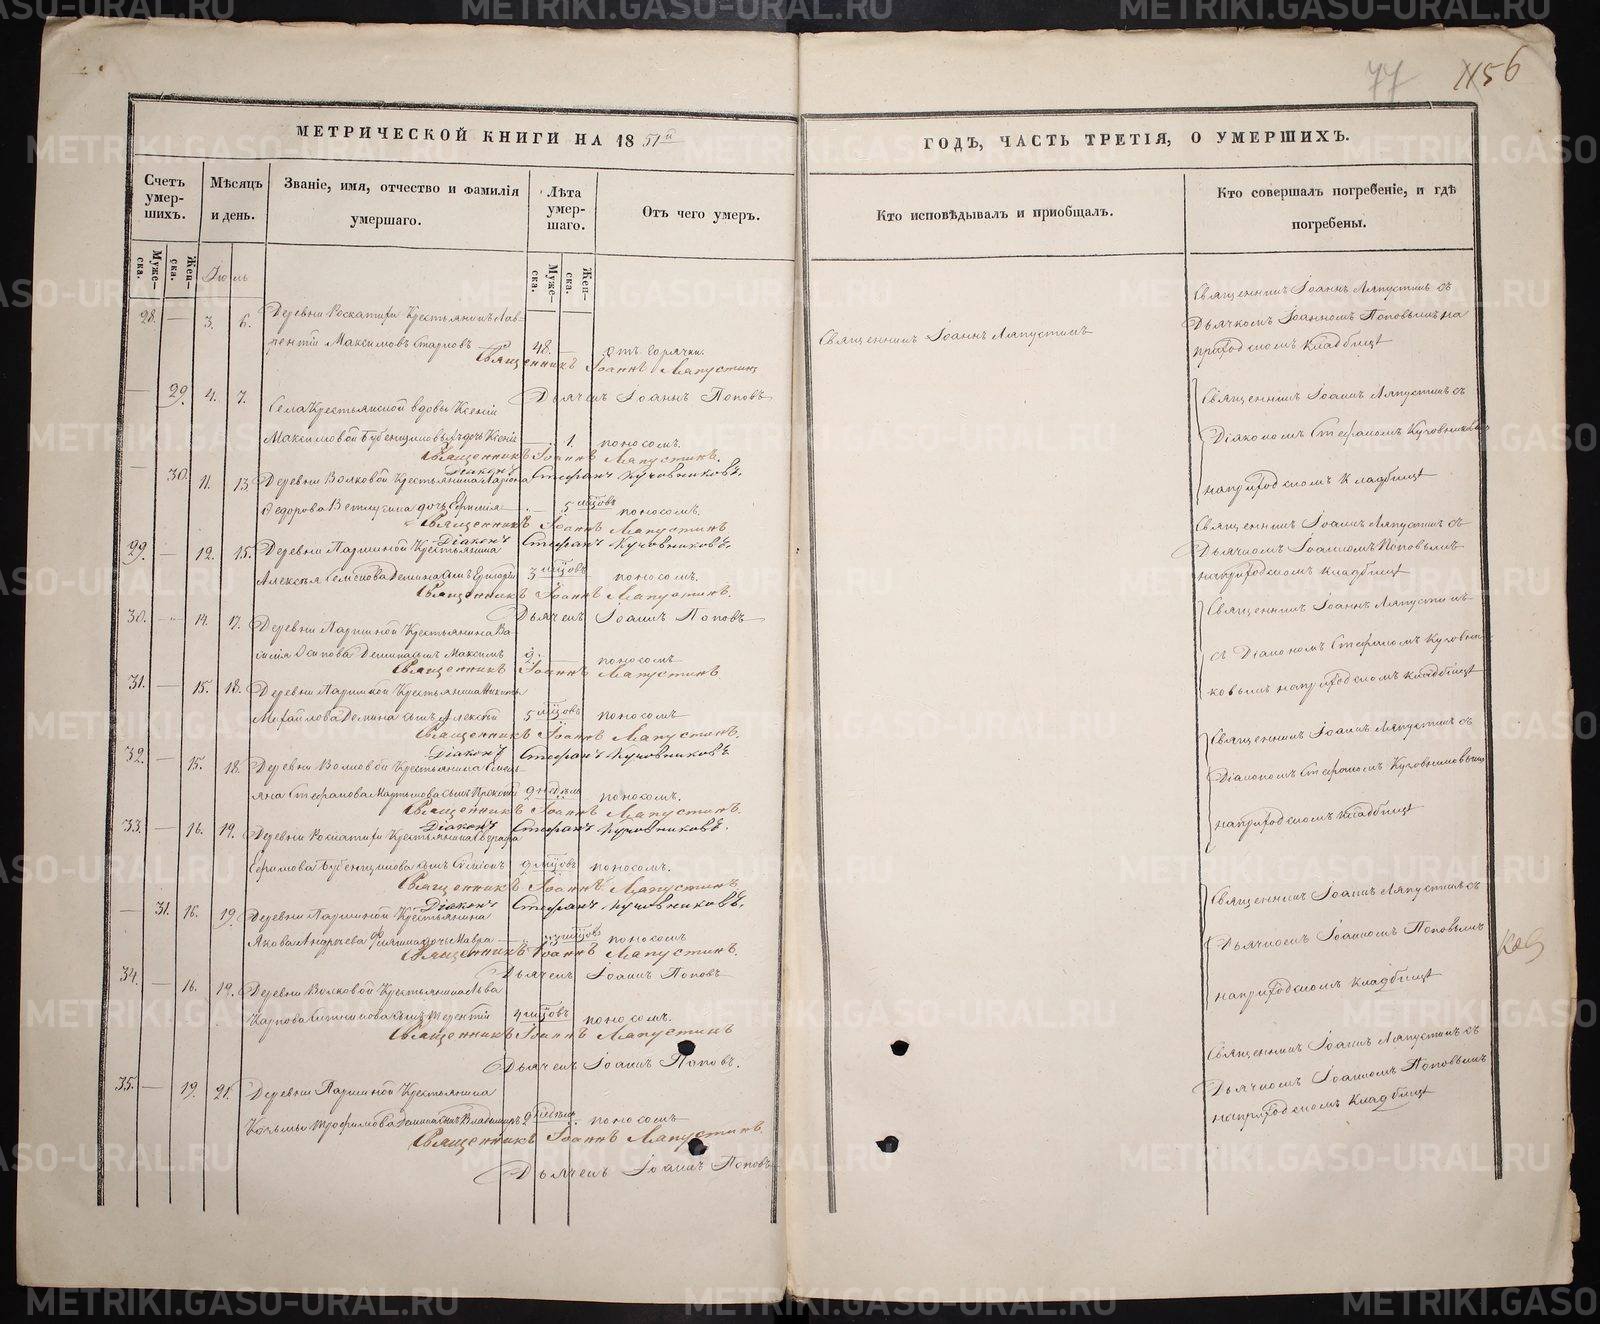 77 1156
МЕТРИЧЕСКОЙ КНИГИ НА 1851й
ГОДЪ, ЧАСТЬ ТРЕТІЯ, О УМЕРШИХЪ.
Счетъ умер-шихъ.
Мѣсяцъ и день.
Званіе, имя, отчество и фамилія умершаго.
Лѣта умер-шаго.
Отъ чего умеръ.
Кто исповѣдывалъ и приобщалъ.
Кто совершалъ погребеніе, и гдѣ погребены.
Муже-ска.
Жен-ска.
Іюль
Муже-ска.
Жен-ска.
28. — 3. 6. Деревни Роскатихи Крестьянинъ Лав-
рентій Максимовъ Старковъ 48. — Отъ горячки.
Священникъ Іоаннъ Ляпустинъ
Священникъ Іоаннъ Ляпустинъ съ
Дьячкомъ Іоанномъ Поповымъ на
приходскомъ кладбищѣ
Священникъ Іоаннъ Ляпустинъ
Дьячекъ Іоаннъ Поповъ
— 29. 4. 7. Села Крестьянской вдовы Ксеніи
Максимовой Бубенщиковы дочь Ксенія — 1. поносомъ.
Священникъ Іоаннъ Ляпустинъ.
Діаконъ Стефанъ Кучовниковъ.
Священникъ Іоаннъ Ляпустинъ съ
Діакономъ Стефаномъ Кучовниковымъ
на приходскомъ кладбищѣ
— 30. 11. 13. Деревни Волковой Крестьянина Лариона
Федорова Ветлугина дочь — 5 мѣсцовъ поносомъ.
Священникъ Іоаннъ Ляпустинъ
Діаконъ Стефанъ Кучовниковъ.
29. — 12. 15. Деревни Паршиной Крестьянина
Алексѣя Семенова Демина сынъ Григорій 3 мѣсцовъ поносомъ.
Священникъ Іоаннъ Ляпустинъ.
Дьячекъ Іоаннъ Поповъ
Священникъ Іоаннъ Ляпустинъ съ
Дьячкомъ Іоанномъ Поповымъ
на приходскомъ кладбищѣ
30. — 14. 17. Деревни Паршиной Крестьянина Ва-
силія Осипова Демина сынъ Максимъ 2. поносомъ
Священникъ Іоаннъ Ляпустинъ
Священникъ Іоаннъ Ляпустинъ
съ Діакономъ Стефаномъ Кучовни-
ковымъ на приходскомъ кладбищѣ
31. — 15. 18. Деревни Паршиной Крестьянина Никиты
Михайлова Демина сынъ Алексѣй 5 мѣсцовъ поносомъ
Священникъ Іоаннъ Ляпустинъ.
Діаконъ Стефанъ Кучовниковъ
32. — 15. 18. Деревни Волковой Крестьянина Емель-
яна Стефанова Мартынова сынъ Прокопій 2 недѣли поносомъ.
Священникъ Іоаннъ Ляпустинъ.
Діаконъ Стефанъ Кучовниковъ.
Священникъ Іоаннъ Ляпустинъ съ
Діакономъ Стефаномъ Кучовниковымъ
на приходскомъ кладбищѣ
33. — 16. 19. Деревни Роскатихи Крестьянина
Ефимова Бубенщикова сынъ Симеонъ 2 мѣсцовъ поносомъ.
Священникъ Іоаннъ Ляпустинъ
Діаконъ Стефанъ Кучовниковъ.
— 31. 16. 19. Деревни Паршиной Крестьянина
Якова Андреева дочь Мавра — 3 мѣсцовъ поносомъ
Священникъ Іоаннъ Ляпустинъ.
Дьячекъ Іоаннъ Поповъ
Священникъ Іоаннъ Ляпустинъ съ
Дьячкомъ Іоанномъ Поповымъ
на приходскомъ кладбищѣ
34. — 16. 19. Деревни Волковой Крестьянина Льва
Карпова сынъ Терентій 4 мѣсцовъ поносомъ.
Священникъ Іоаннъ Ляпустинъ
Дьячекъ Іоаннъ Поповъ.
35. — 19. 21. Деревни Паршиной Крестьянина
Козьмы Трофимова Демина сынъ Владимиръ 2 недѣль. поносомъ
Священникъ Іоаннъ Ляпустинъ.
Дьячекъ Іоаннъ Поповъ
Священникъ Іоаннъ Ляпустинъ съ
Дьячкомъ Іоанномъ Поповымъ
на приходскомъ кладбищѣ
METRIKI.GASO-URAL.RU